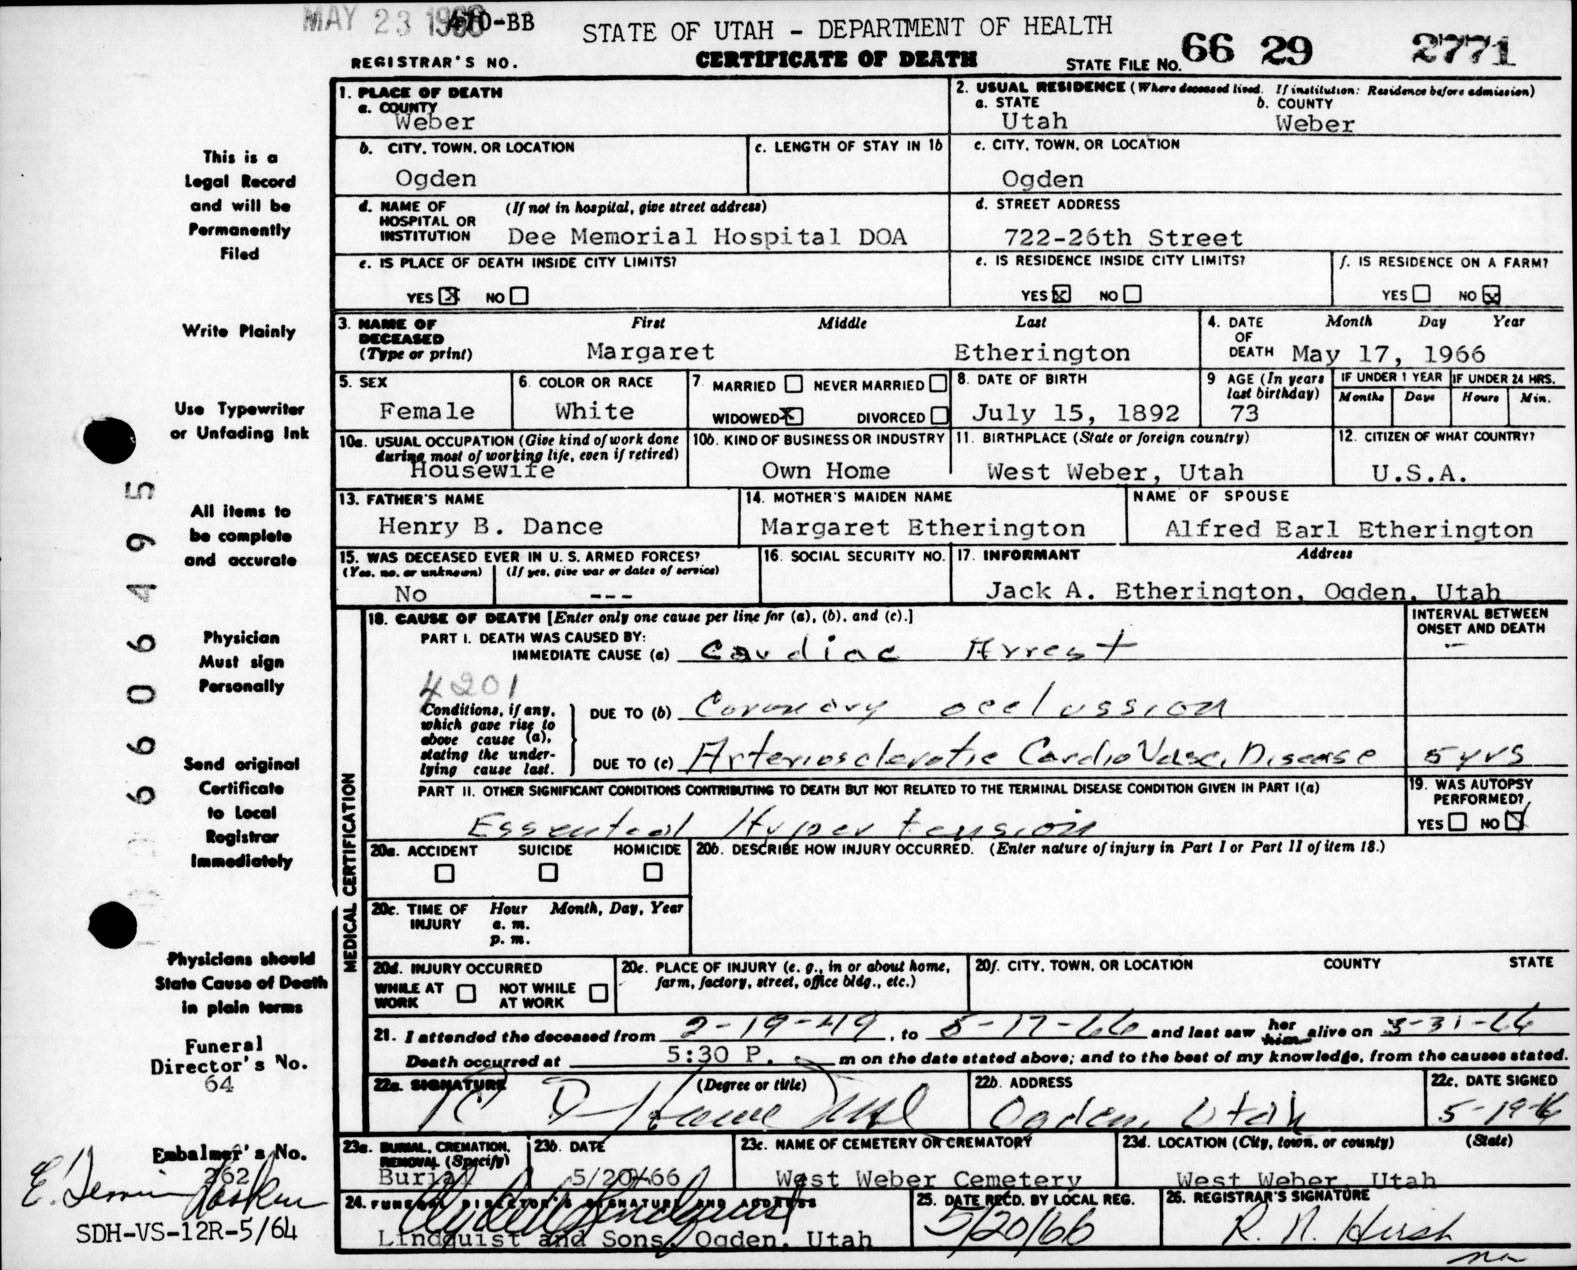 MAY 23 1966 470-BB
STATE OF UTAH - DEPARTMENT OF HEALTH
REGISTRAR'S NO.
CERTIFICATE OF DEATH
STATE FILE NO. 66 29 2771
1. PLACE OF DEATH
a. COUNTY
Weber
2. USUAL RESIDENCE (Where deceased lived. If institution: Residence before admission)
a. STATE b. COUNTY
Utah Weber
b. CITY, TOWN, OR LOCATION
Ogden
c. LENGTH OF STAY IN 1b
c. CITY, TOWN, OR LOCATION
Ogden
d. NAME OF HOSPITAL OR INSTITUTION (If not in hospital, give street address)
Dee Memorial Hospital DOA
d. STREET ADDRESS
722-26th Street
e. IS PLACE OF DEATH INSIDE CITY LIMITS?
YES X NO
e. IS RESIDENCE INSIDE CITY LIMITS?
YES X NO
f. IS RESIDENCE ON A FARM?
YES NO X
3. NAME OF DECEASED (Type or print)
First Middle Last
Margaret Etherington
4. DATE OF DEATH
Month Day Year
May 17, 1966
5. SEX
Female
6. COLOR OR RACE
White
7 MARRIED NEVER MARRIED
WIDOWED X DIVORCED
8. DATE OF BIRTH
July 15, 1892
9 AGE (In years last birthday)
73
IF UNDER 1 YEAR
Months Days
IF UNDER 24 HRS.
Hours Min.
10a. USUAL OCCUPATION (Give kind of work done during most of working life, even if retired)
Housewife
10b. KIND OF BUSINESS OR INDUSTRY
Own Home
11. BIRTHPLACE (State or foreign country)
West Weber, Utah
12. CITIZEN OF WHAT COUNTRY?
U.S.A.
13. FATHER'S NAME
Henry B. Dance
14. MOTHER'S MAIDEN NAME
Margaret Etherington
NAME OF SPOUSE
Alfred Earl Etherington
15. WAS DECEASED EVER IN U. S. ARMED FORCES?
(Yes, no, or unknown) (If yes, give war or dates of service)
No ---
16. SOCIAL SECURITY NO.
17. INFORMANT Address
Jack A. Etherington, Ogden, Utah
MEDICAL CERTIFICATION
18. CAUSE OF DEATH [Enter only one cause per line for (a), (b), and (c).]
INTERVAL BETWEEN ONSET AND DEATH
PART I. DEATH WAS CAUSED BY:
IMMEDIATE CAUSE (a) Cardiac Arrest
4201
Conditions, if any, which gave rise to above cause (a), stating the underlying cause last.
DUE TO (b) Coronary occlussion
DUE TO (c) Arteriosclerotic Cardio Vasc. Disease 5 yrs
PART II. OTHER SIGNIFICANT CONDITIONS CONTRIBUTING TO DEATH BUT NOT RELATED TO THE TERMINAL DISEASE CONDITION GIVEN IN PART I(a)
Essential Hypertension
19. WAS AUTOPSY PERFORMED?
YES NO X
20a. ACCIDENT SUICIDE HOMICIDE
20b. DESCRIBE HOW INJURY OCCURRED. (Enter nature of injury in Part I or Part II of item 18.)
20c. TIME OF INJURY
Hour Month, Day, Year
a. m.
p. m.
20d. INJURY OCCURRED
WHILE AT WORK NOT WHILE AT WORK
20e. PLACE OF INJURY (e. g., in or about home, farm, factory, street, office bldg., etc.)
20f. CITY, TOWN, OR LOCATION COUNTY STATE
21. I attended the deceased from 2-19-49, to 5-17-66 and last saw her him alive on 3-31-66
Death occurred at 5:30 P. m on the date stated above; and to the best of my knowledge, from the causes stated.
22a. SIGNATURE (Degree or title)
22b. ADDRESS
Ogden, Utah
22c. DATE SIGNED
5-19-66
23a. BURIAL, CREMATION, REMOVAL (Specify)
Burial
23b. DATE
5/20/66
23c. NAME OF CEMETERY OR CREMATORY
West Weber Cemetery
23d. LOCATION (City, town, or county) (State)
West Weber, Utah
24. FUNERAL DIRECTOR'S SIGNATURE AND ADDRESS
Lindquist and Sons, Ogden, Utah
25. DATE RECD. BY LOCAL REG.
5/20/66
26. REGISTRAR'S SIGNATURE
R. N. Hirsh
This is a
Legal Record
and will be
Permanently
Filed
Write Plainly
Use Typewriter
or Unfading Ink
All items to
be complete
and accurate
Physician
Must sign
Personally
Send original
Certificate
to Local
Registrar
Immediately
Physicians should
State Cause of Death
in plain terms
Funeral
Director's No.
64
Embalmer's No.
262
SDH-VS-12R-5/64
66066495